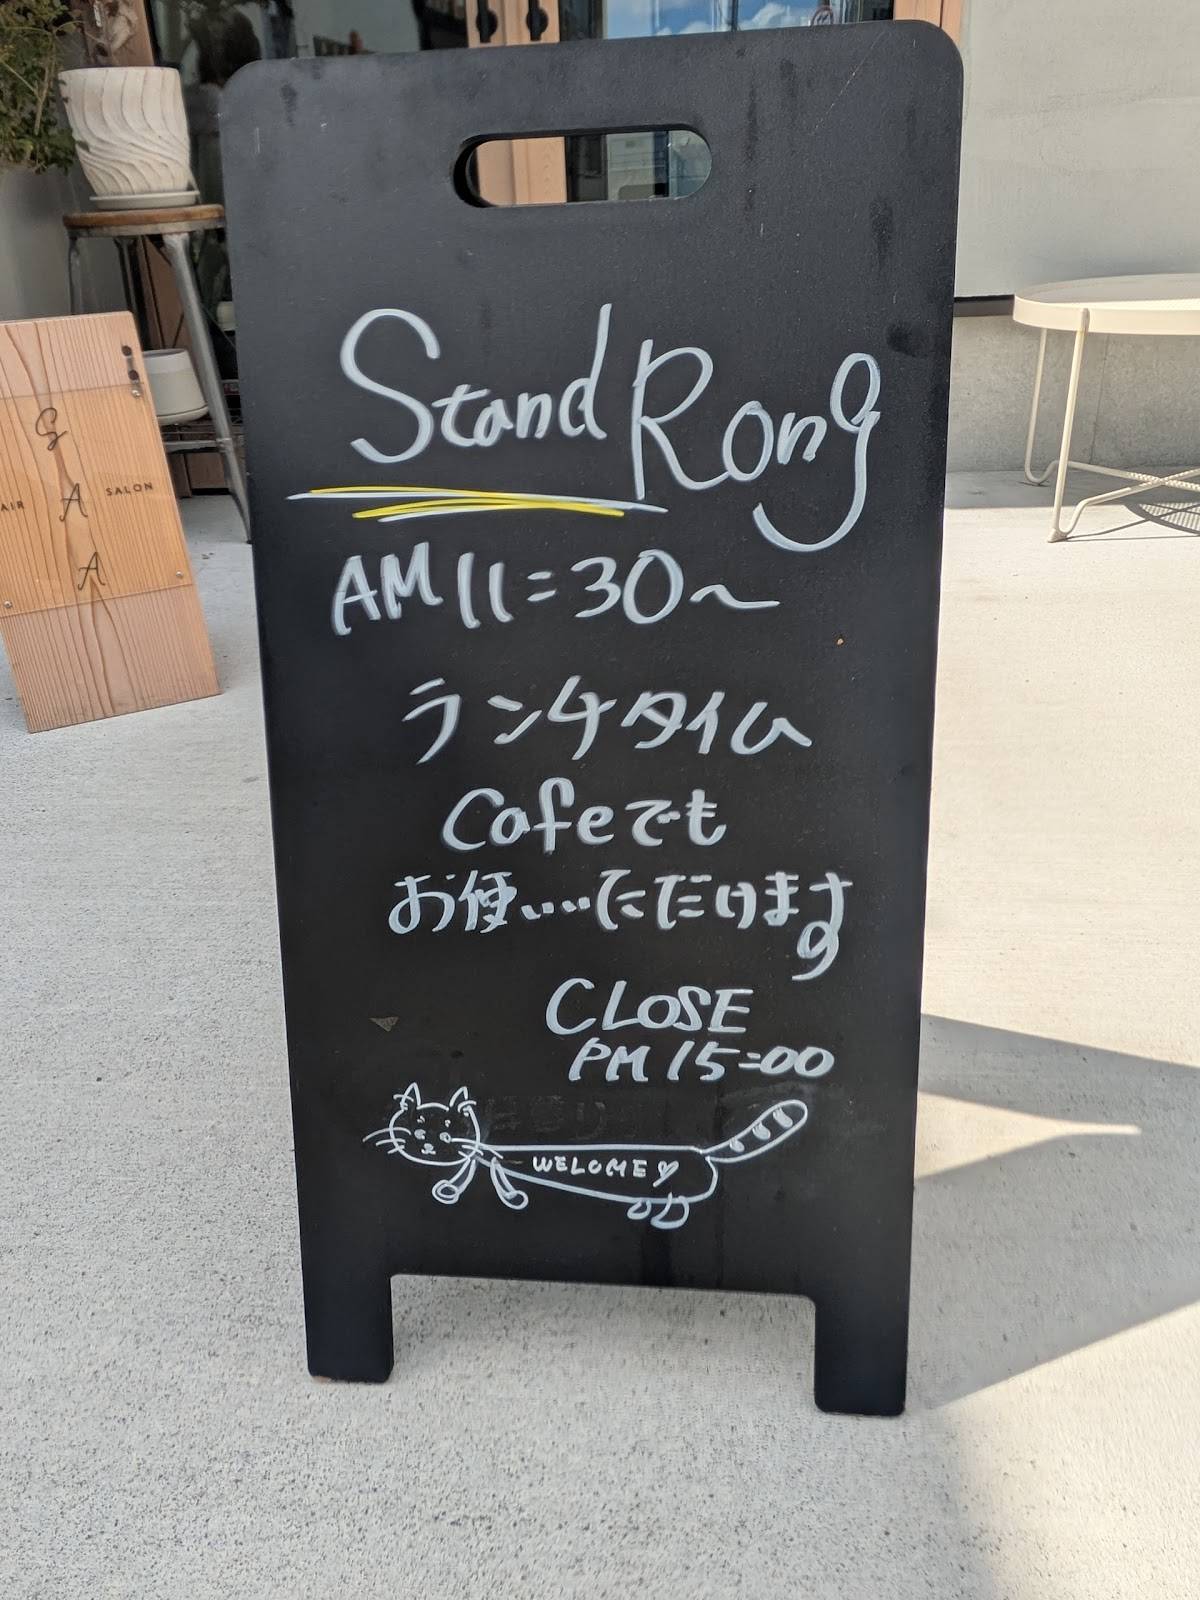 Stand Rong
AM 11:30～
ランチタイム
Cafeでも
お使いいただけます
CLOSE
PM 15:00
WELOME♡
G
A
A
AIR
SALON